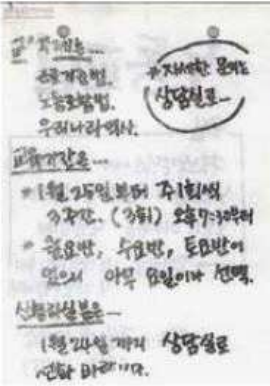 교육내용은...
근로기준법.
노동조합법.
우리나라역사.
* 자세한 문의는
상담실로ㅡ
교육기간은...
* 1월 25일부터 주1회씩
3주간. (3회) 오후7:30부터
* 월요반, 수요반, 토요반이
있으니 아무 요일이나 선택.
신청하실분은ㅡ
1월 24일까지 상담실로
전화 바랍니다.